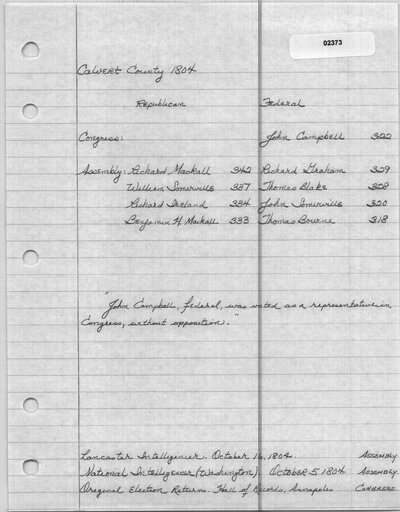 02373
Calvert County 1804
Republican Federal
Congress: John Campbell 322
Assembly: Richard Mackall 342 Richard Graham 329
William Somervills 337 Thomas Blake 328
Richard Ireland 334 John Somervills 320
Benjamin H Mackall 333 Thomas Bourne 318
"John Campbell, federal, was voted as a representative in
Congress, without opposition."
Lancaster Intelligencer. October 16, 1804. Assembly
National Intelligencer (Washington). October 5 1804 Assembly
Original Election Returns. Hall of Records, Annapolis Congress.